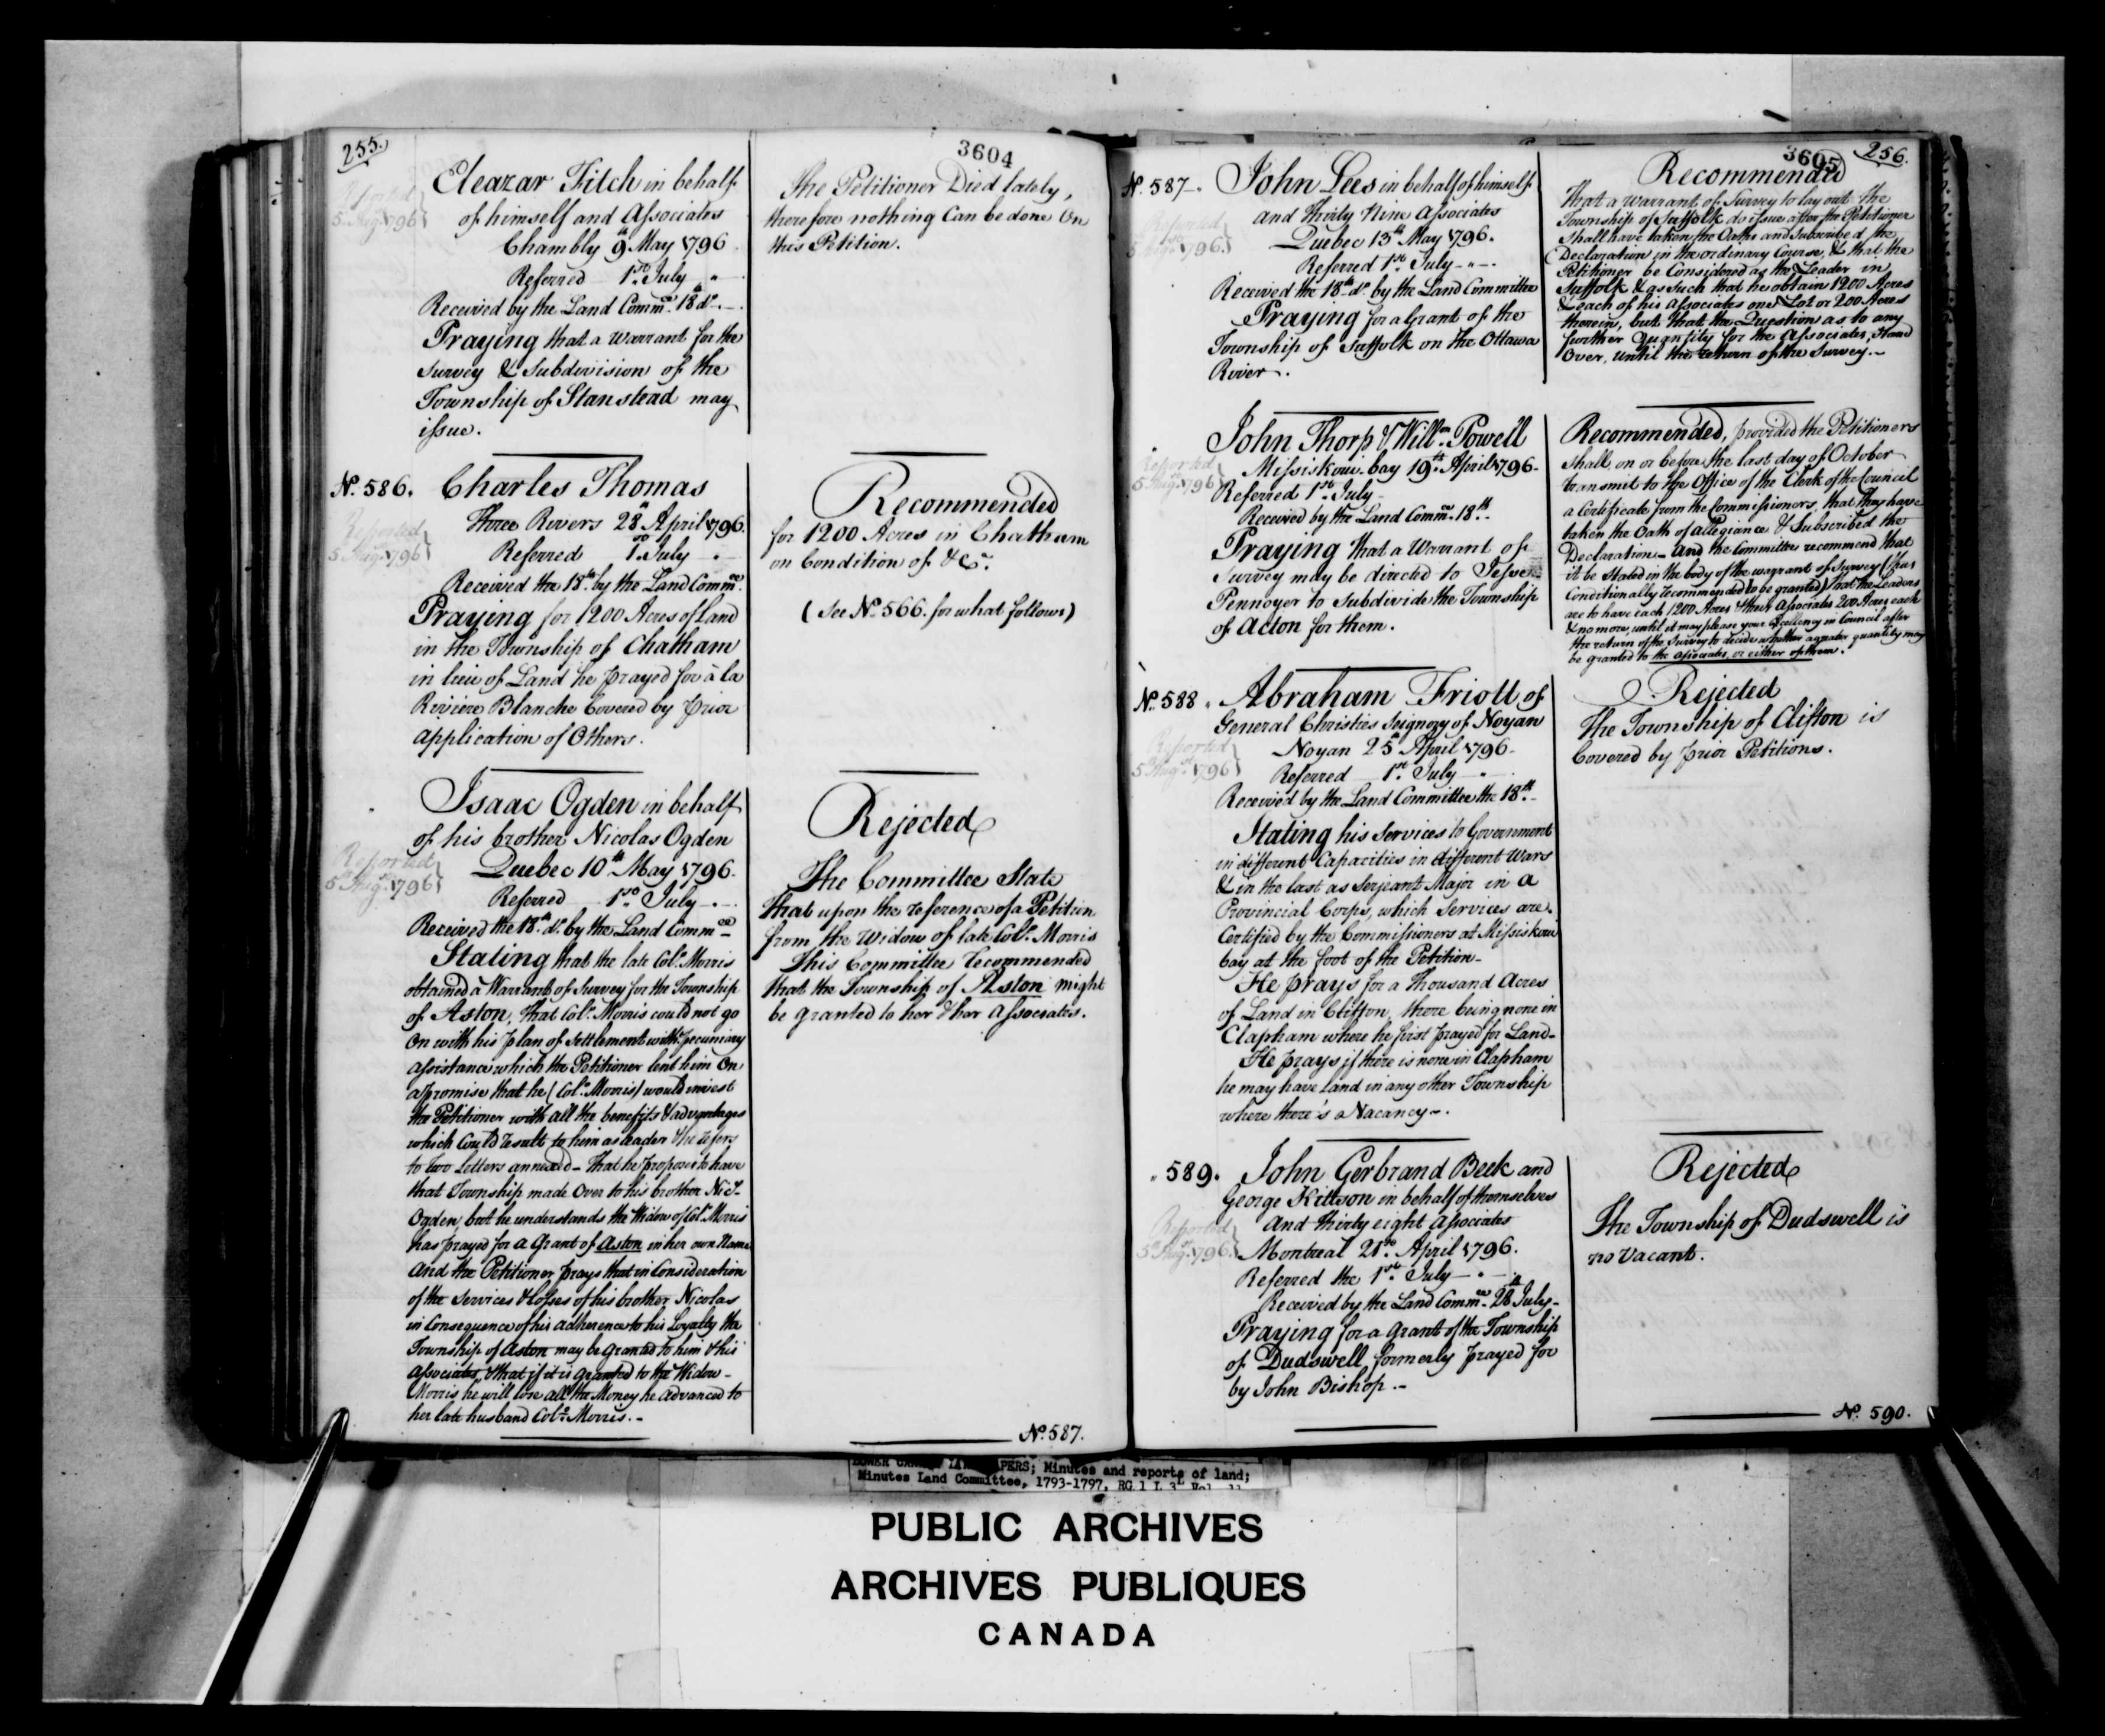 255.
3604
Eleazar Fitch in behalf
of himself and Associates
Chambly 9th May 1796
Referred 1st July "
Received by the Land Commee 18th do.
Praying that a Warrant for the
Survey & Subdivision of the
Township of Stanstead may
issue.
Reported
5 Augt. 1796
The Petitioner Died lately,
therefore nothing Can be done On
this Petition.
No. 586. Charles Thomas
Three Rivers 28th April 1796.
Referred 1st July
Received the 18th by the Land Commee.
Praying for 1200 Acres of Land
in the Township of Chatham
in lieu of Land he prayed for à la
Riviere Blanche Covered by Prior
application of Others.
Reported
5 Augt. 1796
Recommended
for 1200 Acres in Chatham
on Condition of &ca.
(See No. 566. for what follows)
Isaac Ogden in behalf
of his brother Nicolas Ogden
Quebec 10th May 1796.
Referred 1st July
Received the 18th do. by the Land Commee
Stating that the late Colo. Morris
obtained a Warrant of Survey for the Township
of Aston, that Colo. Morris could not go
On with his plan of Settlement witht. pecuniary
assistance which the Petitioner lent him On
a promise that he (Colo. Morris) would invest
the Petitioner with all the benefits & advantages
which Could result to him as leader & he refers
to two Letters annexed - That he proposes to have
that Township made Over to his brother Nics.
Ogden, but he understands the Widow of Colo. Morris
has prayed for a Grant of Aston in her own Name
And the Petitioner prays that in Consideration
of the Services & losses of his brother Nicolas
in Consequence of his adherence to his Loyalty the
Township of Aston may be granted to him & his
Associates, & that if it is granted to the Widow
Morris he will lose all the Money he advanced to
her late husband Colo. Morris. -
Reported
5 Augt. 1796
Rejected
The Committee State
That upon the reference of a Petition
from the Widow of late Colo. Morris
This Committee recommended
that the Township of Aston might
be granted to her & her Associates.
No. 587.
3605
256.
No. 587. John Lees in behalf of himself
and thirty Nine Associates
Quebec 13th May 1796.
Referred 1st July - " -
Received the 18th do. by the Land Committee
Praying for a Grant of the
Township of Suffolk on the Ottawa
River.
Reported
5 Augt. 1796.
Recommended
That a Warrant of Survey to lay out the
Township of Suffolk do issue after the Petitioner
shall have taken the Oaths and Subscribed the
Declaration in the ordinary Course, & that the
Petitioner be Considered as the Leader in
Suffolk & as such that he obtain 1200 Acres
& each of his Associates one Lot or 200 Acres
therein, but that the Question as to any
further Quantity for the Associates, Stand
Over, until the return of the Survey. -
John Thorp & Willm. Powell
Missiskoui bay 19th April 1796.
Referred 1st July
Received by the Land Commee. 18th.
Praying that a Warrant of
Survey may be directed to Jesse
Pennoyer to Subdivide the Township
of Acton for them.
Reported
5 Augt. 1796
Recommended, provided the Petitioners
shall on or before the last day of October
transmit to the Office of the Clerk of the Council
a Certificate from the Commissioners, that they have
taken the Oath of allegiance & Subscribed the
Declaration - And the Committee recommend that
it be stated in the body of the warrant of Survey (thus
Conditionally recommended to be granted) that the Leaders
are to have each 1200 Acres & their Associates 200 Acres each
& no more, until it may please your Excellency in Council after
the return of the Survey to decide whether a greater quantity may
be granted to the Associates, or either of them.
No. 588. Abraham Friott of
General Christies Seignory of Noyan
Noyan 25th April 1796.
Referred 1st July
Received by the Land Committee the 18th.
Stating his Services to Government
in different Capacities in different Wars
& in the last as Serjeant Major in a
Provincial Corps, which Services are
Certified by the Commissioners at Missiskoui
bay at the foot of the Petition -
He prays for a Thousand Acres
of Land in Clifton, there being none in
Clapham where he first prayed for Land -
He prays if there is none in Clapham
he may have land in any other Township
where there's a Vacancy -.
Reported
5 Augt. 1796
Rejected
The Township of Clifton is
Covered by prior Petitions.
" 589. John Gerbrand Beek and
George Kittson in behalf of themselves
and thirty eight Associates
Montreal 21st. April 1796.
Referred the 1st July - " -
Received by the Land Commee. 28th July -
Praying for a Grant of the Township
of Dudswell, formerly prayed for
by John Bishop. -
Reported
5 Augt. 1796.
Rejected
The Township of Dudswell is
no Vacant.
No. 590.
LOWER CANADA LAND PAPERS; Minutes and reports of land;
Minutes Land Committee, 1793-1797, RG 1 L 3L Vol. 11
PUBLIC ARCHIVES
ARCHIVES PUBLIQUES
CANADA